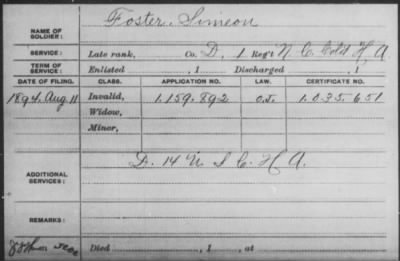 NAME OF SOLDIER: Foster, Simeon
SERVICE: Late rank, Co. D, 1 Reg't N. C. Cold H. A.
TERM OF SERVICE: Enlisted , 1 Discharged , 1
DATE OF FILING. CLASS. APPLICATION NO. LAW. CERTIFICATE NO.
1894. Aug 11 Invalid, 1.159.892 1.035.651
Widow,
Minor,
ADDITIONAL SERVICES: D. 14 U. S. C. H. A.
REMARKS:
Died , 1 , at